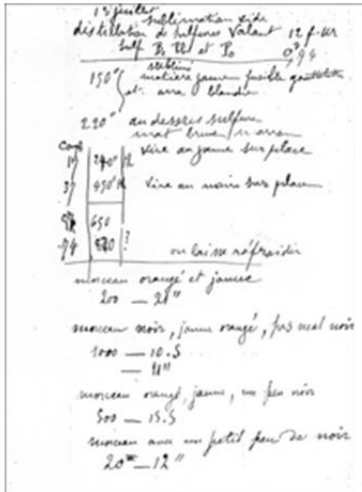 13 juillet
sublimation vide
distillation de sulfures valant 12 f. ur
sulf Bi Pb et Po 0,94
sublimé
150° matière jaune fusible
et. arra blanche
220° au dessus sulfure
mat brune
vire au jaune sur place
37 450° vire au noire sur place
650
74 ?
on laisse réfroidir
morceau orangé et jaune
200 — 21"
morceau noir, jaune orangé, pas mal noir
1000 — 10.5
— 11"
morceau orangé, jaune, un peu noir
500 — 15.5
morceau avec un petit peu de noir
20 — 12"